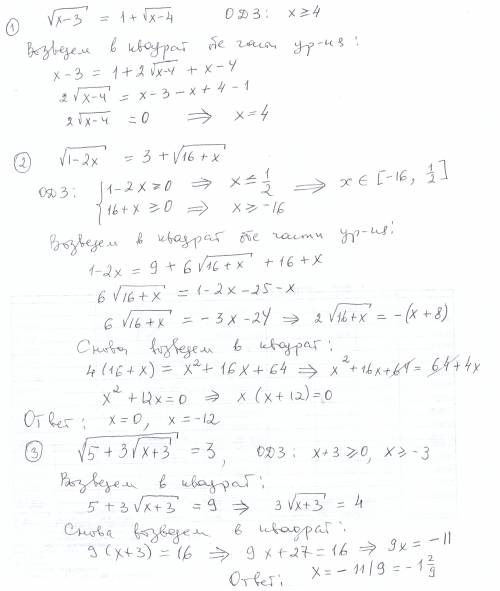 ① √x-3 = 1+√x-4 ОДЗ: x≥4
Возведем в квадрат обе части ур-ия:
x-3 = 1+2√x-4 + x-4
2√x-4 = x-3-x+4-1
2√x-4 = 0 ⇒ x=4
② √1-2x = 3+√16+x
ОДЗ: { 1-2x≥0 ⇒ x≤1/2 ⇒ x∈[-16, 1/2]
16+x≥0 ⇒ x≥-16
Возведем в квадрат обе части ур-ия:
1-2x = 9+6√16+x + 16+x
6√16+x = 1-2x-25-x
6√16+x = -3x-24 ⇒ 2√16+x = -(x+8)
Снова возведем в квадрат:
4(16+x) = x²+16x+64 ⇒ x²+16x+64 = 64+4x
x²+12x=0 ⇒ x(x+12)=0
Ответ: x=0, x=-12
③ √5+3√x+3 = 3, ОДЗ: x+3≥0, x≥-3
Возведем в квадрат:
5+3√x+3 = 9 ⇒ 3√x+3 = 4
Снова возведем в квадрат:
9(x+3)=16 ⇒ 9x+27=16 ⇒ 9x=-11
Ответ: x=-11/9=-1 2/9